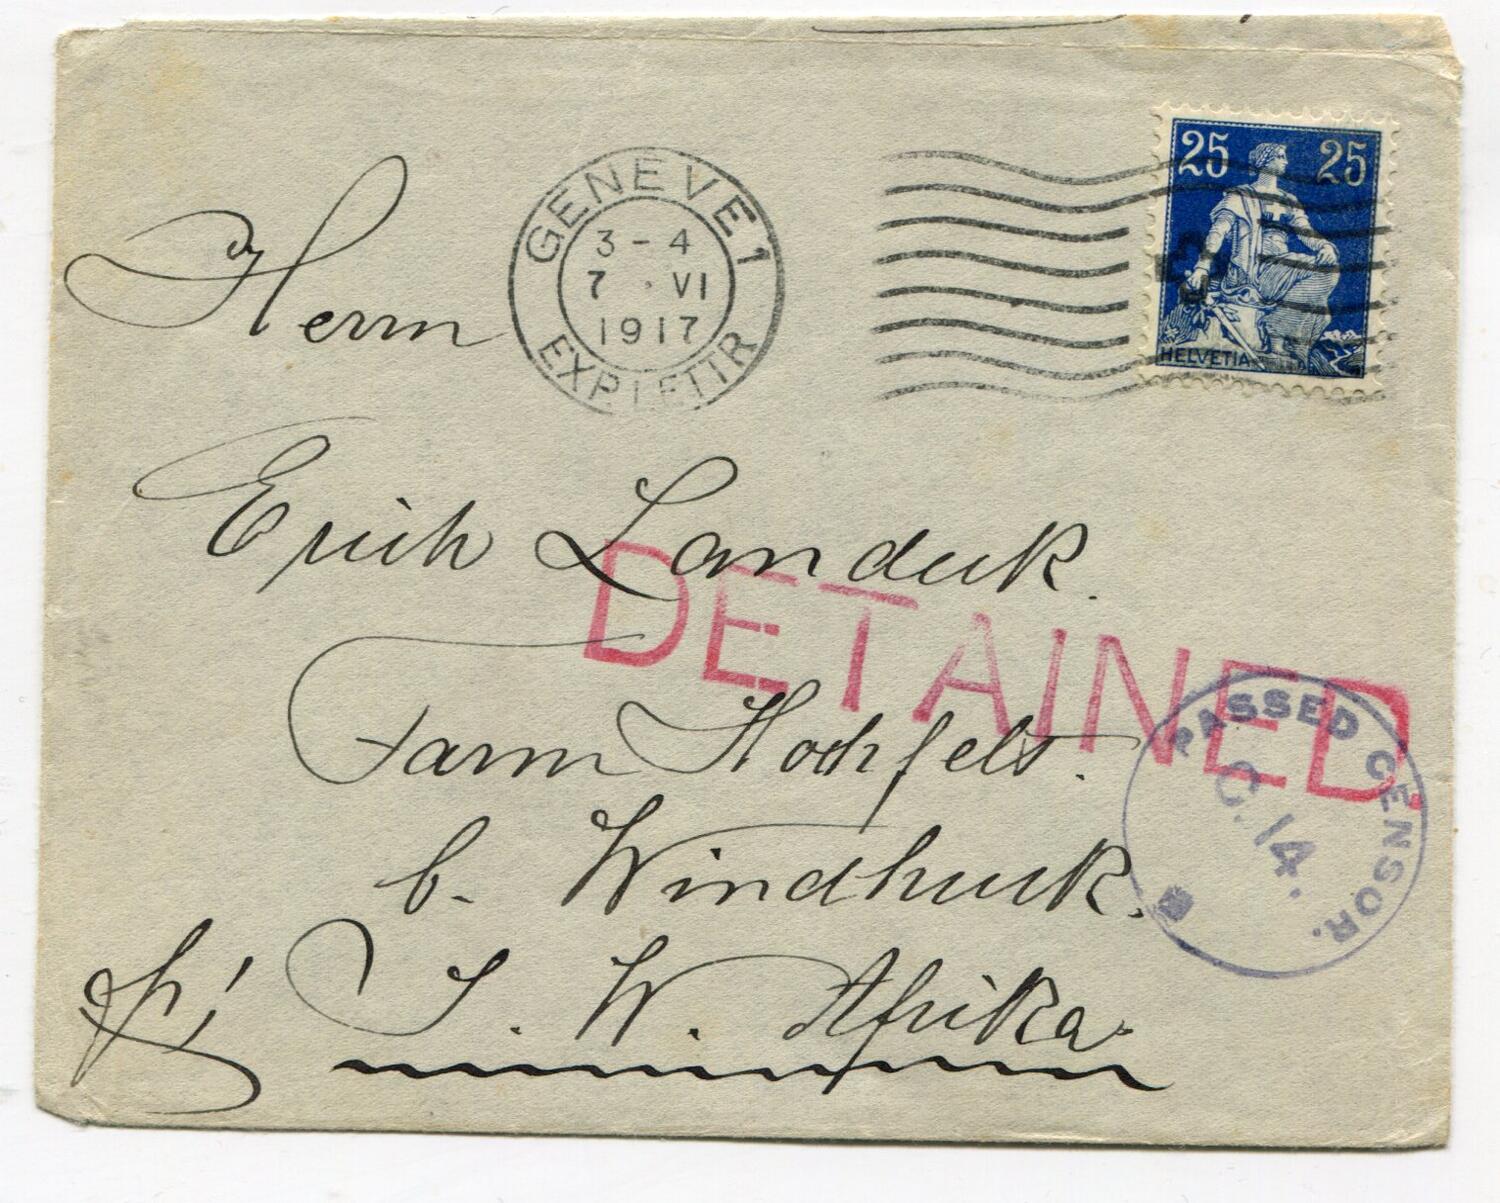 25 25
HELVETIA
GENÈVE 1
3 - 4
7 · VI
1917
EXP. LETTR
Herrn
Erich Landuk.
DETAINED.
Farm Hochfeld.
b. Windhuuk.
S. W. Afrika
PASSED CENSOR.
C. 14.